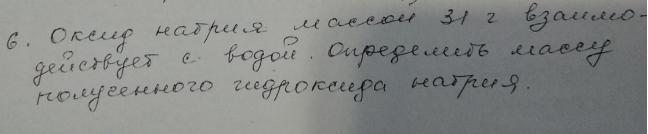 6. Оксид натрия массой 31 г взаимо-
действует с водой. Определить массу
полученного гидроксида натрия.